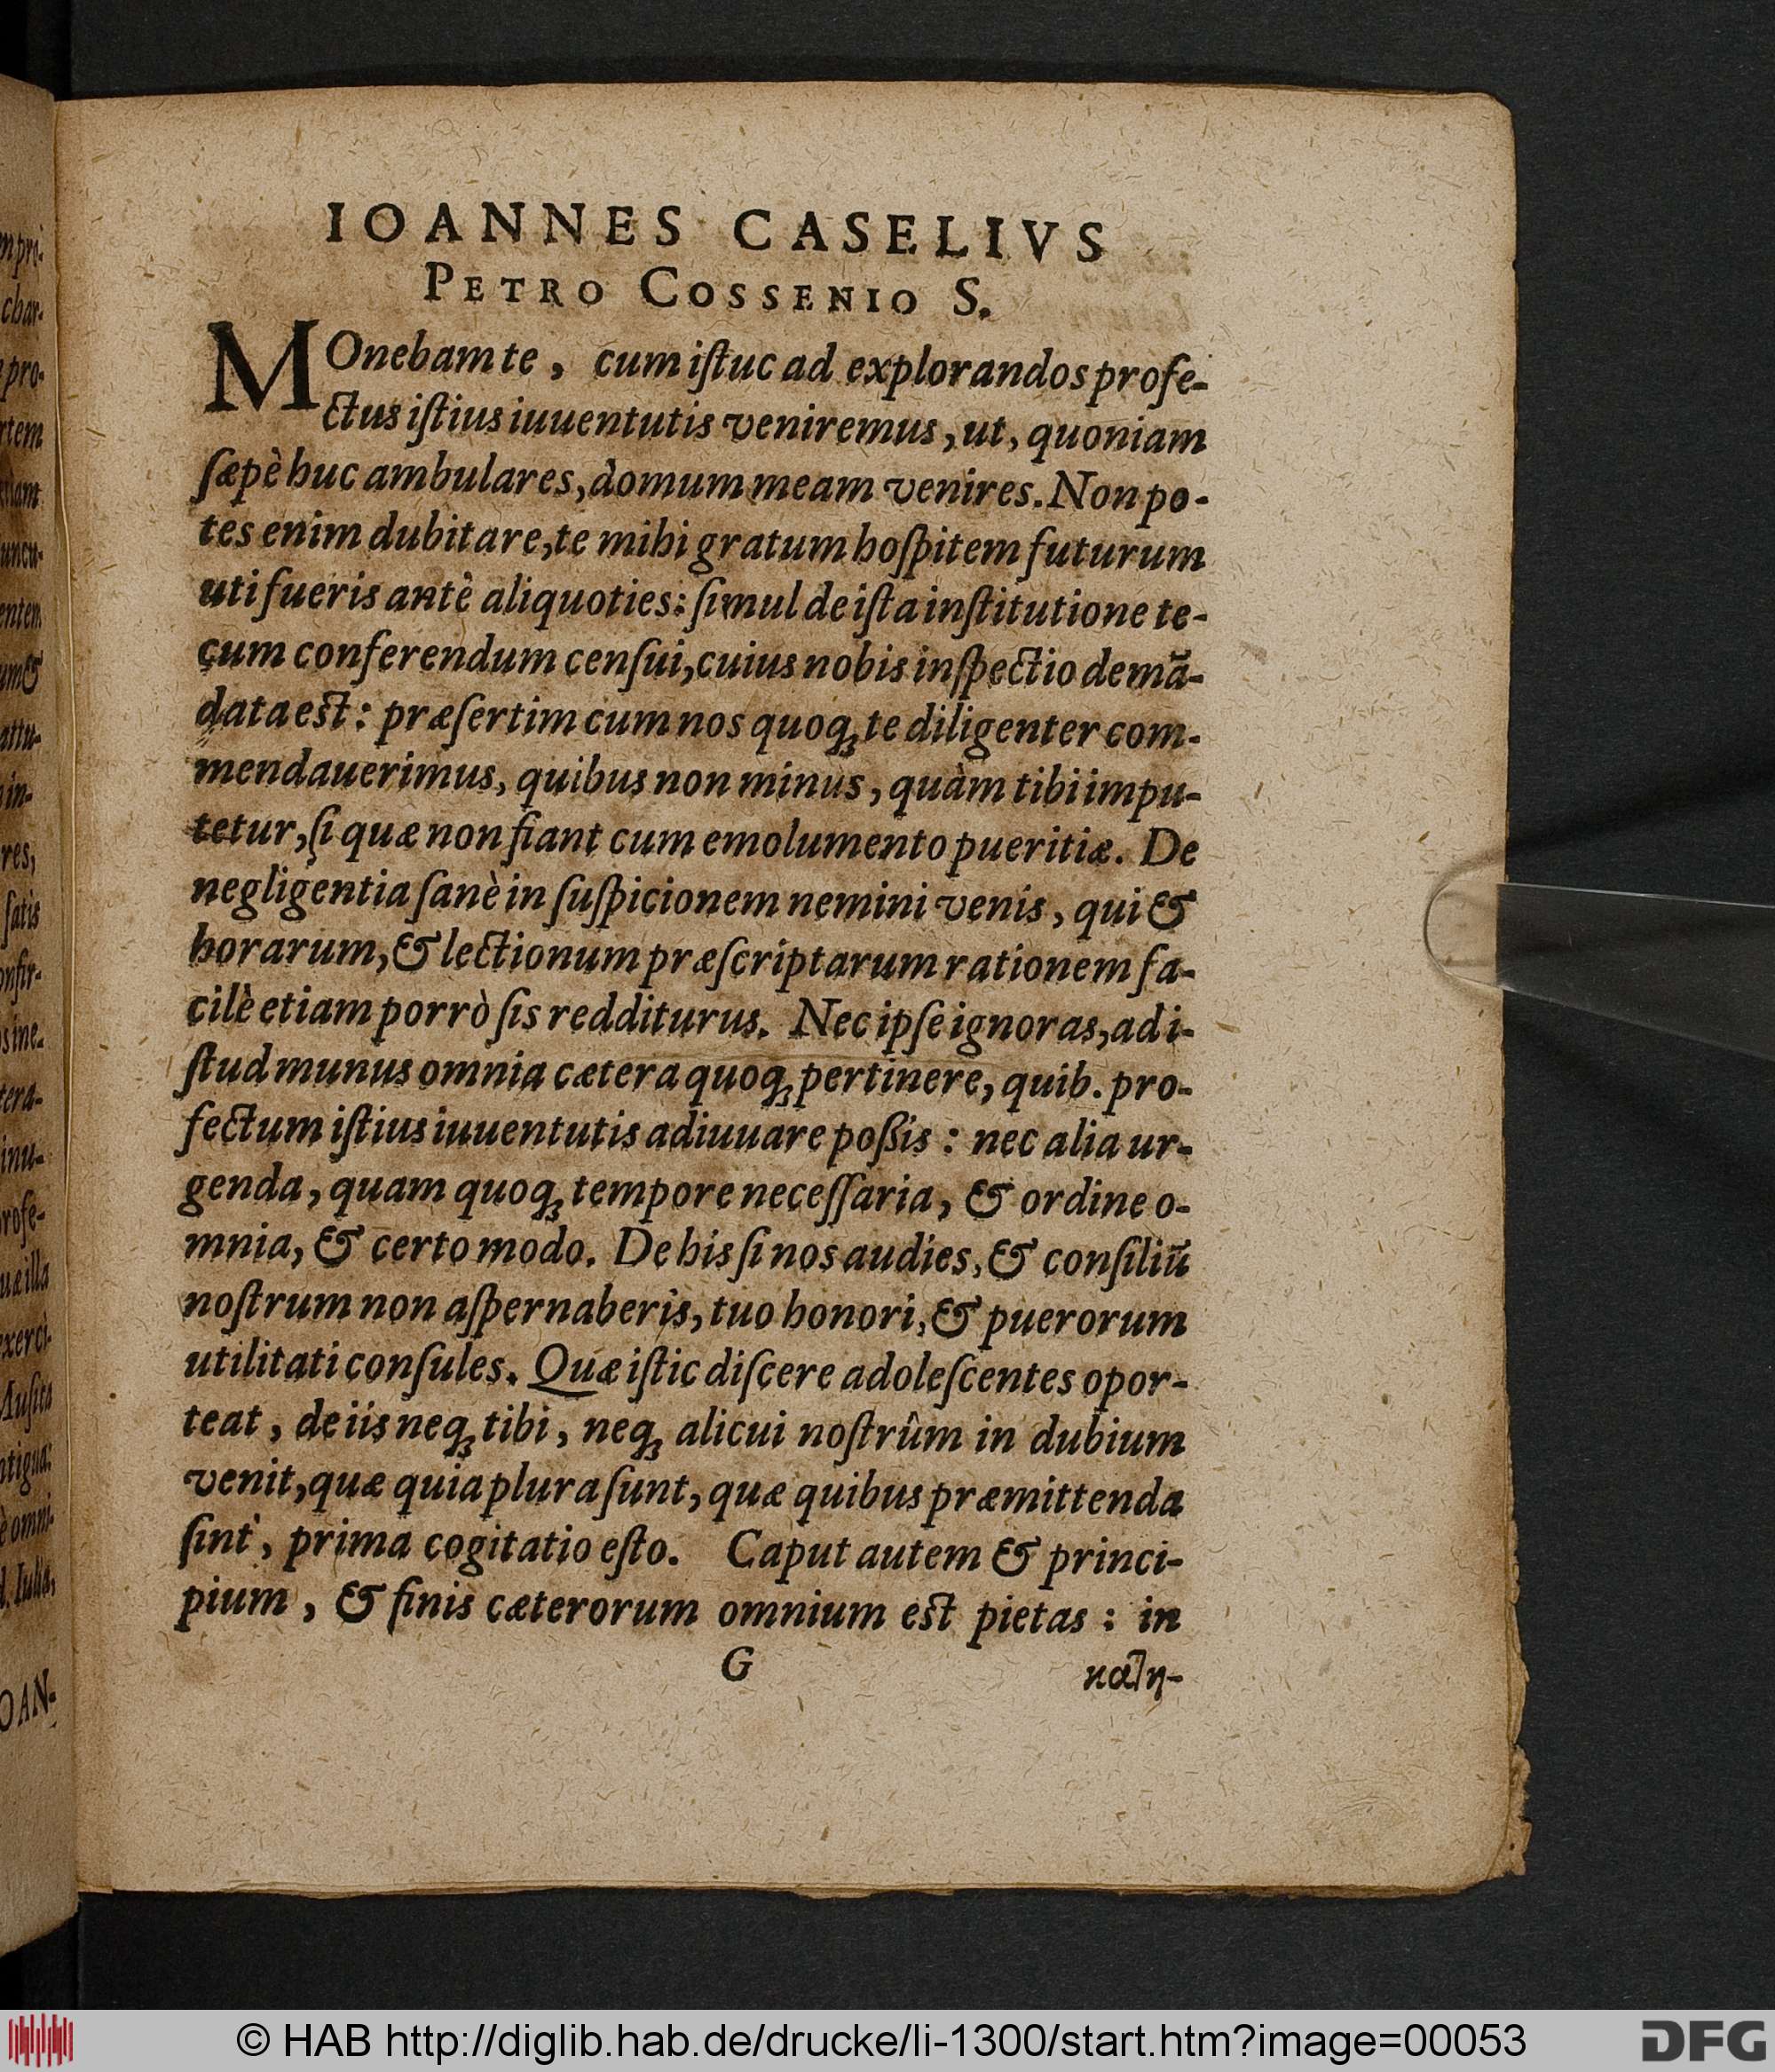 IOANNES CASELIVS
PETRO COSSENIO S.
MOnebam te, cum iſtuc ad explorandos profe-
ctus iſtius iuuentutis veniremus, ut, quoniam
ſæpè huc ambulares, domum meam venires. Non po-
tes enim dubitare, te mihi gratum hoſpitem futurum
uti fueris antè aliquoties: ſimul de iſta inſtitutione te-
cum conferendum cenſui, cuius nobis inſpectio demã-
data est: præſertim cum nos quoq; te diligenter com-
mendauerimus, quibus non minus, quàm tibi impu-
tetur, ſi quæ non fiant cum emolumento pueritiæ. De
negligentia ſanè in ſuſpicionem nemini venis, qui &
horarum, & lectionum præſcriptarum rationem fa-
cilè etiam porrò ſis redditurus. Nec ipſe ignoras, ad i-
ſtud munus omnia cætera quoq; pertinere, quib. pro-
fectum iſtius iuuentutis adiuuare poßis: nec alia ur-
genda, quam quoq; tempore neceſſaria, & ordine o-
mnia, & certo modo. De his ſi nos audies, & conſiliũ
noſtrum non aſpernaberis, tuo honori, & puerorum
utilitati conſules. Quæ iſtic diſcere adoleſcentes opor-
teat, de iis neq; tibi, neq; alicui noſtrûm in dubium
venit, quæ quia plura ſunt, quæ quibus præmittenda
ſint, prima cogitatio eſto. Caput autem & princi-
pium, & finis cæterorum omnium est pietas: in
G κατη-
mpri-
char-
pro-
rtem
etiam
uncu-
enten
um&
attu-
in-
res,
ſatis
onfir-
sine-
tera-
inu-
rofe-
uæ illa
exerci-
Muſita
è omni-
d. Iulia,
OAN-
© HAB http://diglib.hab.de/drucke/li-1300/start.htm?image=00053
DFG